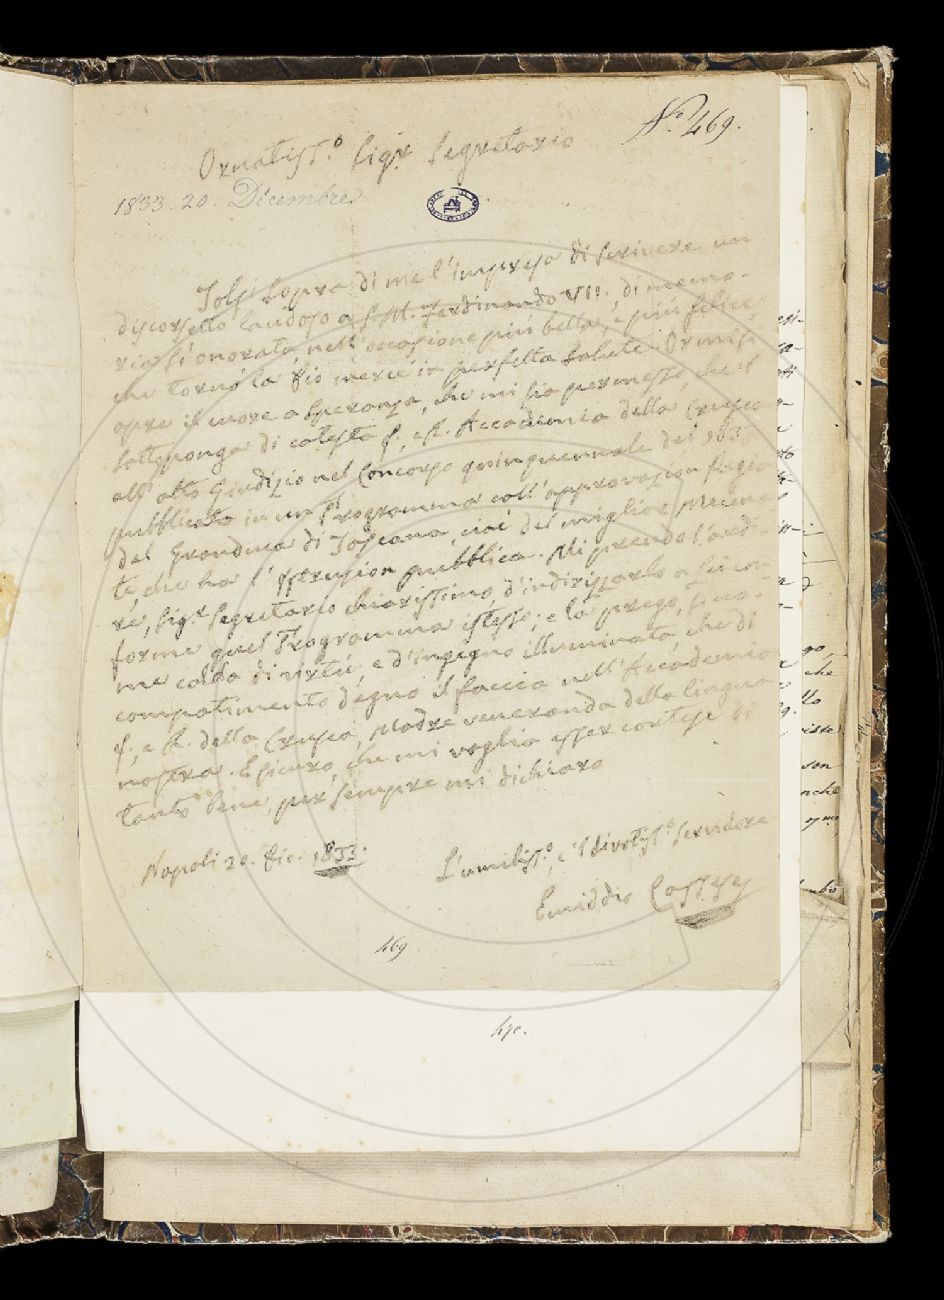 N.° 469.
Ornatiss.° Sig.r Segretario
1833. 20. Dicembre
Tolsi sopra di me l'impresa di scrivere un
discorsetto laudoso a S. M. Ferdinando VII. di memo-
ria sì onorata, nell'occasione più bella, e più felice,
che tornò la Dio mercè in perfetta salute. Or mi si
apre il cuore a speranza, che mi sia permesso, che il
sottoponga di cotesta I. e R. Accademia della Crusca
all'alto Giudizio nel Concorso quinquennale del
pubblicato in un Programma coll'approvazion Regia
del Granduca di Toscana, cioè del miglior Mecena-
te, che ha l'Istruzion pubblica. Mi prendo l'ardi-
re, Sig.r Segretario chiarissimo, d'indirizzarlo a Lei con-
forme quel Programma istesso; e la prego, sicco-
me calda di virtù, e d'ingegno illuminata che di
compatimento degno il faccia nell'Accademia
I. e R. della Crusca, Madre veneranda della lingua
nostra. E sicuro, che mi voglia esser cortese di
tanto bene, per sempre mi dichiaro
Napoli 20. Dic. 1833.
L'umiliss.°, e 'l divotiss.° servidore
Emiddio
469
470.